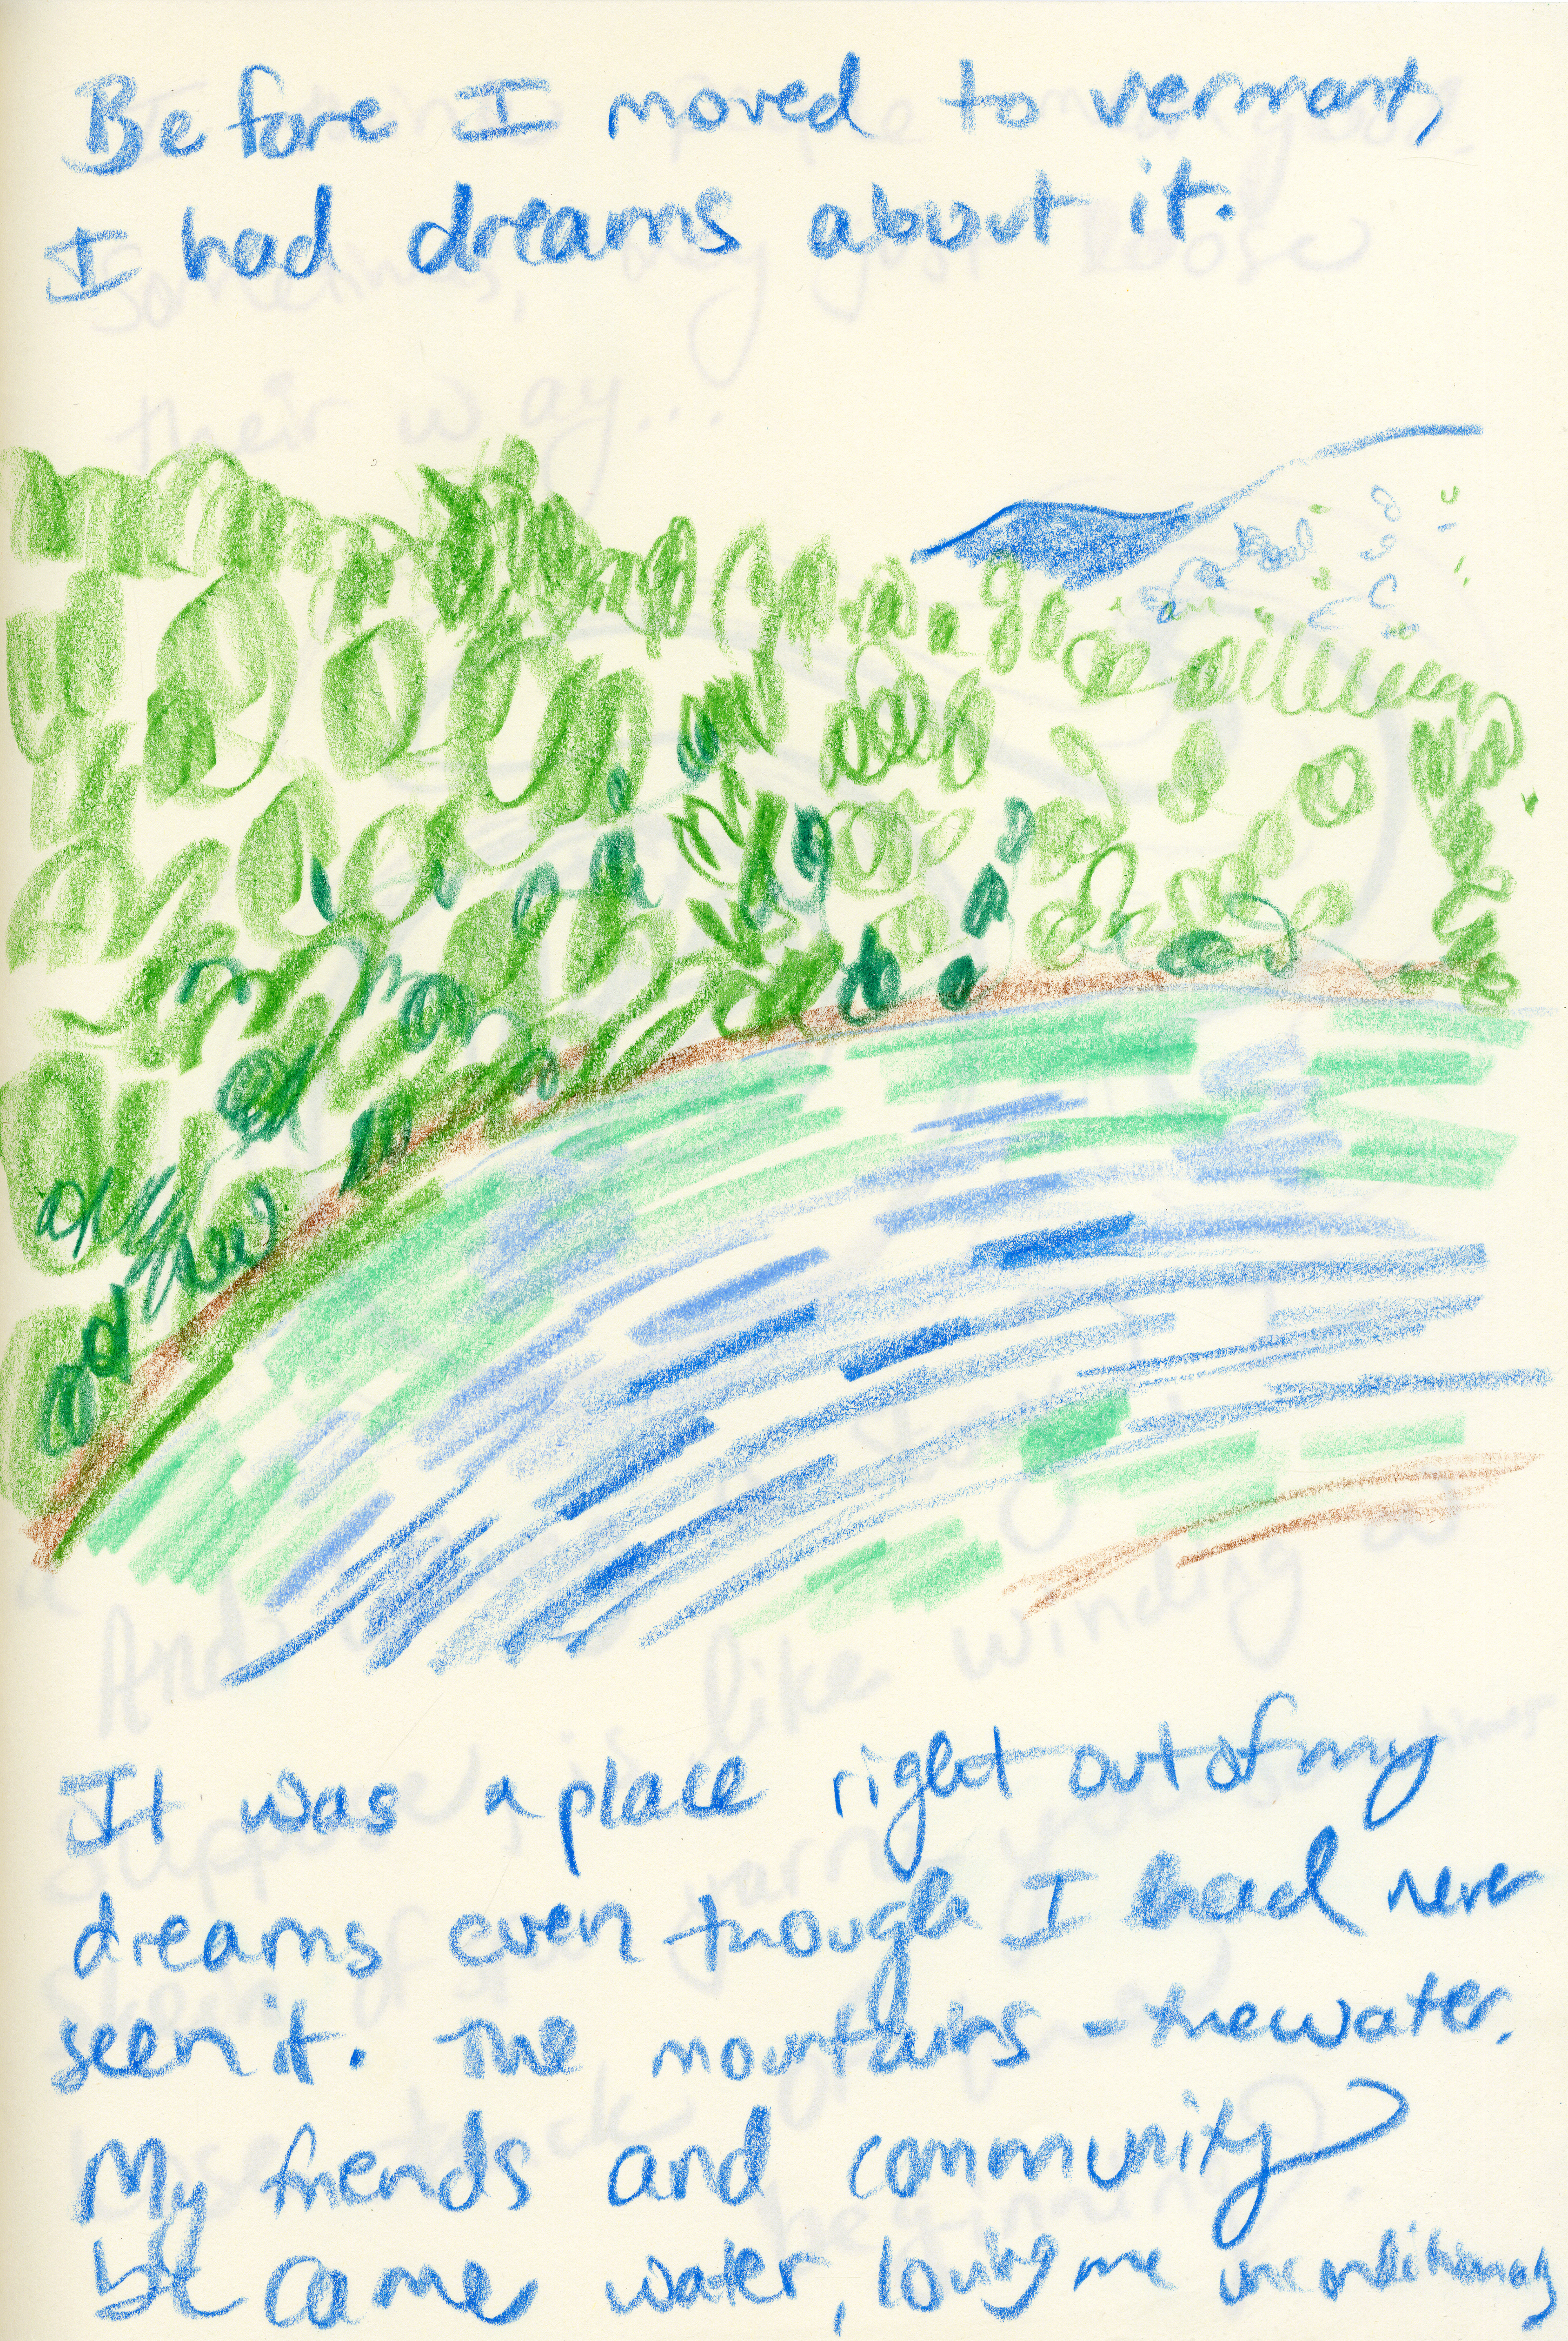 Before I moved to vermont,
I had dreams about it.
It was a place right out of my
dreams even though I had never
seen it. The mountains - the water.
My friends and community
became water, loving me unconditionally